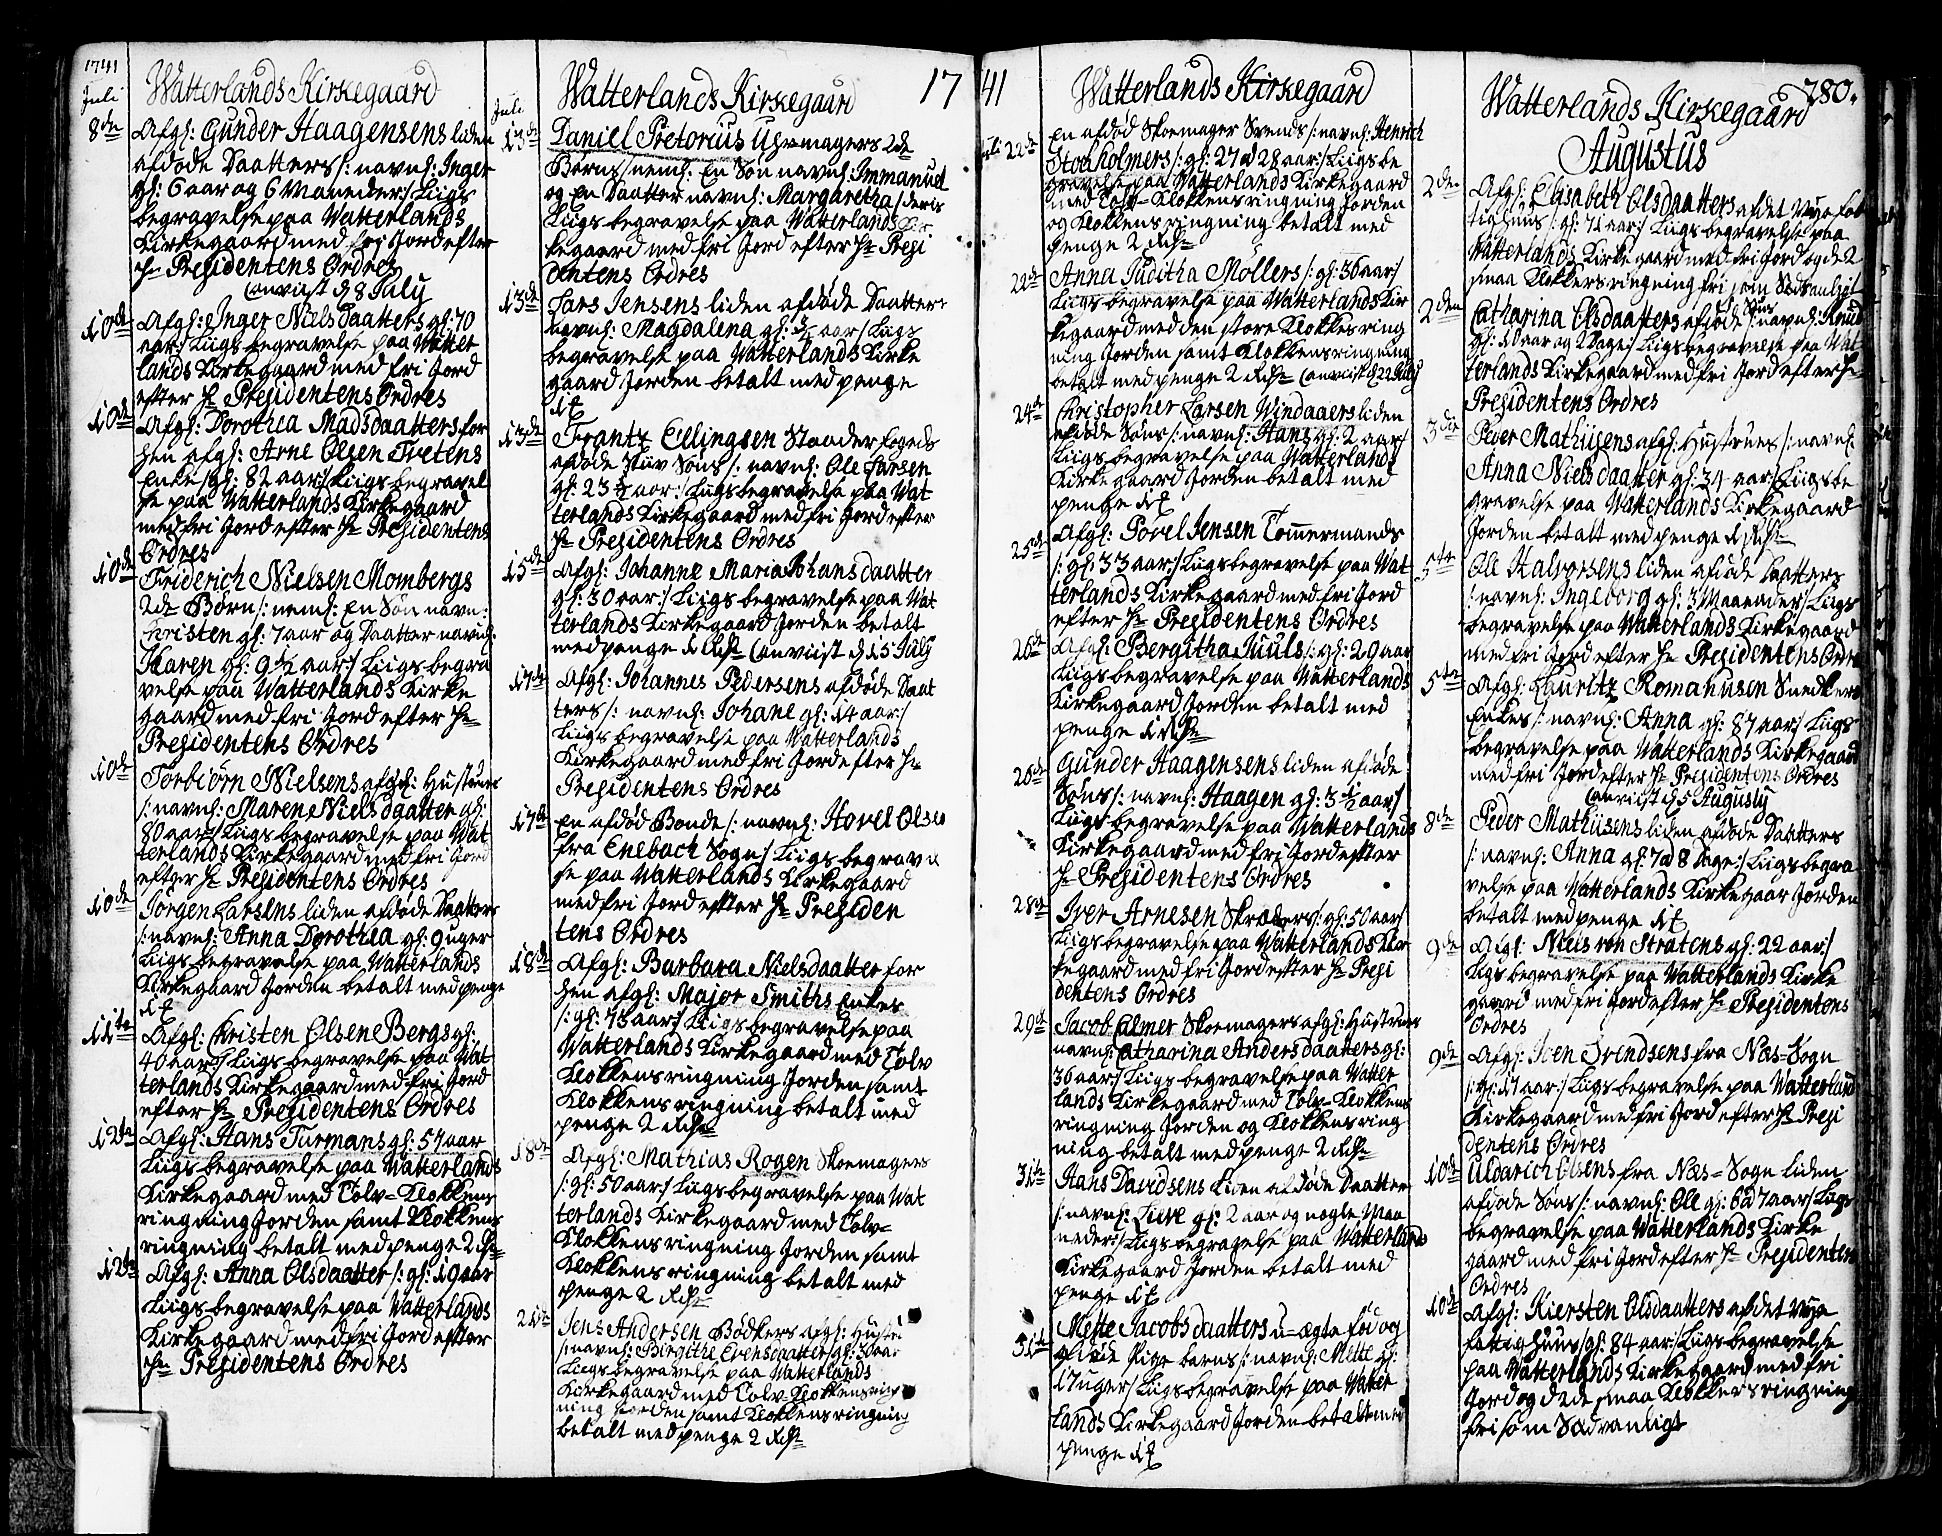 1741
Juli
Watterlands Kirkegaard
8de Afgl: Gunder Haagensens liden
afdøde Daatters /: navnl: Inger
gl: 6 aar og 6 Maaneder/ Liigs
begravelse paa Watterlands
Kirkegaard med fri Jord efter
Hr Presidentens Ordres
(anviist d 8 July
10de Afgl: Inger Nielsdaatters gl: 70
aar/ Liigs begravelse paa Watter
lands Kirkegaard med fri Jord
efter Hr Presidentens Ordres
10de Afgl: Dorothea Madsdaatters for
hen afgl: Arne Olsen Tretens
Enke /gl: 82 aar:/ Liigs begravel
se paa Watterlands Kirkegaard
med fri Jord efter Hr Presidentens
Ordres
10de Friderich Nielsen Mombergs
2de Børn /: neml: En Søn navn:
Christen gl: 7 aar og Daatter navnl:
Karen gl: 9 1/2 aar:/ Liigs begra
velse paa Watterlands Kirke
gaard med fri Jord efter Hr
Presidentens Ordres
10de Torbiørn Nielsens afgl: Hustrue
/: navnl: Maren Nielsdaatter gl:
80 aar:/ Liigs begravelse paa Wat
terlands Kirkegaard med fri Jord
efter Hr Presidentens Ordres
10de Jørgen Larsens liden afdøde Daatters
/: navnl: Anna Dorothea gl: 9 uger
Liigs begravelse paa Watterlands
Kirkegaard Jorden betalt med penge
1 ɟ
11te Afgl: Christen Olsen Bergs gl:
40 aar:/ Liigs begravelse paa Wat
terlands Kirkegaard med fri Jord
efter Hr Presidentens Ordres
12te Afgl: Hans Turmans gl: 57 aar
Liigs begravelse paa Watterlands
Kirkegaard med Tolv=Klokkens
ringning Jorden samt Klokkens
ringning betalt med penge 2 Rdr
12te Afgl: Anna Olsdaatter /: gl: 19 aar
Liigs begravelse paa Watterlands
Kirkegaard med fri Jord efter
Hr Presidentens Ordres
Juli
Watterlands Kirkegaard 17
13de Daniel Pretorius Uhrmagers 2de
Børns/ neml: En Søn navnl: Immanuel
og En Daatter navnl: Margaretha / deris
Liigs begravelse paa Watterlands Kir
kegaard med fri Jord efter Hr Presi
dentens Ordres
13de Lars Jensens liden afdøde Daatters
navnl: Magdalena gl: 1/2 aar/ Liigs
begravelse paa Watterlands Kirke
gaard Jorden betalt med penge
1 ɟ
13de Frantz Ellingsen Staader fogeds
afdøde Stiiv Søns /: navnl: Ole Larsen
gl: 23 1/2 aar:/ Liigs begravelse paa Wat
terlands Kirkegaard med fri Jord efter
Hr Presidentens Ordres
15de Afgl: Johanne Maria Johansdaatter
gl: 30 aar:/ Liigs begravelse paa Wat
terlands Kirkegaard Jorden betalt
med penge 1 Rdr (anviist d 15 July
17de Afgl: Johannes Pedersens afdøde Daat
ters /: navnl: Johane gl: 14 aar:/
Liigs begravelse paa Watterlands
Kirkegaard med fri Jord efter Hr
Presidentens Ordres
17de En afdød Bonde /: navnl: Hovel Olsen
fra Enebach Sogn:/ Liigs begravel
se paa Watterlands Kirkegaard
med fri Jord efter Hr Presiden
tens Ordres
18de Afgl: Barbara Nielsdaatter for
hen afgl: Major Smiths Enkes
/: gl: 75 aar:/ Liigs begravelse paa
Watterlands Kirkegaard med Tolv
Klokkens ringning Jorden samt
Klokkens ringning betalt med
penge 2 Rdr
18de Afgl: Mathias Rogen Skoemagers
/: gl: 50 aar:/ Liigs begravelse paa Wat
terlands Kirkegaard med Tolv=
Klokkens ringning Jorden samt
Klokkens ringning betalt med
penge 2 Rdr
21de Jens Andersen Bødkers afgl: Hustru
/: navnl: Birgithe Evensdaatter gl: 30 aar
Liigs begravelse paa Watterlands
Kirkegaard med Tolv Klokkens ring
ning Jorden samt Klokkens ringning
betalt med penge 2 Rdr
41 Watterlands Kirkegaard
Juli 22de En afdød Skoemager Svends /: navnl: Henrich
Stockholmers /: gl: 27 a 28 aar:/ Liigs be
gravelse paa Watterlands Kirkegaard
med Tolv=Klokkens ringning Jorden
og Klokkens ringning betalt med
penge 2 Rdr
22de Anna Juditha Møllers /: gl: 36 aar:/
Liigs begravelse paa Watterlands Kir
kegaard med den store Klokkes ring
ning Jorden samt Klokkens ringning
betalt med penge 2 Rdr (anviist d 22 July
24de Christopher Larsen Windaaers liden
afdøde Søns /: navnl: Hans gl: 2 aar:/
Liigs begravelse paa Watterlands
Kirkegaard Jorden betalt med
penge 1 ɟ
25de Afgl: Povel Jensen Tømmermands
/: gl: 33 aar:/ Liigs begravelse paa Wat
terlands Kirkegaard med fri Jord
efter Hr Presidentens Ordres
26de Afgl: Bergitha Juuls /: gl: 29 aar
Liigs begravelse paa Watterlands
Kirkegaard Jorden betalt med
penge 1 Rdr
26de Gunder Haagensens liden afdøde
Søns /: navnl: Haagen gl: 3 1/2 aar:/
Liigs begravelse paa Watterlands
Kirkegaard med fri Jord efter
Hr Presidentens Ordres
28de Iver Arnesen Skræders /: gl: 50 aar:/
Liigs begravelse paa Watterlands Kir
kegaard med fri Jord efter Hr Presi
dentens Ordres
29de Jacob Calmer Skoemagers afgl: Hustrues
navnl: Catharina Andersdaatters gl:
36 aar:/ Liigs begravelse paa Watter
lands Kirkegaard med Tolv=Klokkens
ringning Jorden og Klokkens ring
ning betalt med penge 2 Rdr
31te Hans Davidsens liden afdøde Daatter
/: navnl: Live gl: 2 aar og nogle Maa
neder:/ Liigs begravelse paa Watterlands
Kirkegaard Jorden betalt med
penge 1 ɟ
31te Mette Jacobsdaatters u=ægte fød og
døde Pige barns /: navnl: Mette gl:
17 uger/ Liigs begravelse paa Watter
lands Kirkegaard Jorden betalt med
penge 1 ɟ
780.
Watterlands Kirkegaard
Augustus
2den Afgl: Elisabeth Olsdaatters af det Nye fat
tighuus /: gl: 71 aar:/ Liigs begravelse paa
Watterlands Kirkegaard med fri Jord og de 2
smaa Klokkers ringning fri som Sædvanligt
2den Catharina Olsdaatters afdøde Søns /: navnl: Knud
gl: 10 aar og 2 Dage:/ Liigs begravelse paa Wat
terlands Kirkegaard med fri Jord efter Hr
Presidentens Ordres
3die Peder Mathiisens afgl: Hustrues /: navnl:
Anna Nielsdaatter gl: 34 aar/ Liigs be
gravelse paa Watterlands Kirkegaard
Jorden betalt med penge 1 Rdr
5te Ole Halvorsens liden afdøde Daatters
/: navnl: Ingeborg gl: 3 Maaneder/ Liigs
begravelse paa Watterlands Kirkegaard
med fri Jord efter Hr Presidentens Ordres
5te Afgl: Lauritz Romanusen Snedkers
Enkes /: navnl: Anna gl: 87 aar/ Liigs
begravelse paa Watterlands Kirkegaard
med fri Jord efter Hr Presidentens Ordres
(anviist d 5 Augusty
8de Peder Mathiisens liden afdøde Daatters
/: navnl: Anna gl: 7 a 8 Dage:/ Liigs begra
velse paa Watterlands Kirkegaar Jorden
betalt med penge 1 ɟ
9de Afgl: Niels von Stratens gl: 22 aar:/
Liigs begravelse paa Watterlands Kirke
gaard med fri Jord efter Hr Presidentens
Ordres
9de Afgl: Iven Svendsens fra Næs=Sogn
/: gl: 17 aar:/ Liigs begravelse paa Watterland
Kirkegaard med fri Jord efter Hr Presi
dentens Ordres
10de Uldarich Olsens fra Næs=Sogn liden
afdøde Søns /: navnl: Ole gl: 6 a 7 aar/ Liigs
begravelse paa Watterlands Kirke
gaard med fri Jord efter Hr Presidentens
Ordres
10de Afgl: Kiersten Olsdaatters af det Nye
fattighuus /gl: 84 aar:/ Liigs begravelse
paa Watterlands Kirkegaard med fri
Jord og d 2de smaa Klokkers ringning
fri som Sædvanligt